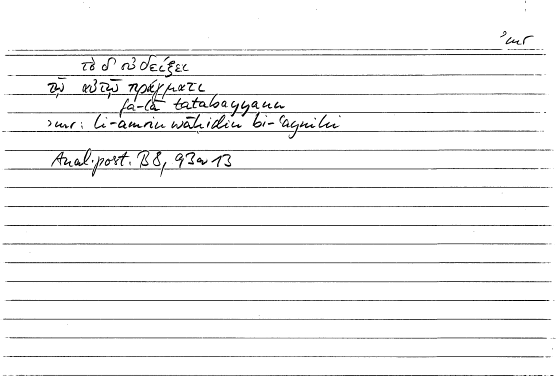 ʾmr
τὸ δ' οὐ δείξει
τῷ αὐτῷ πράγματι
fa-lā tatabayyanu
ʾmr: li-amrin wāḥidin bi-ʿaynihi
Anal. post. B8, 93a13